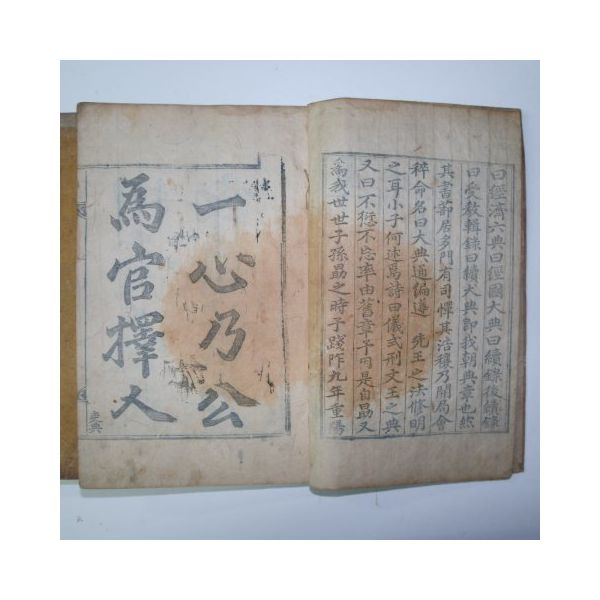 曰經濟六典曰經國大典曰續錄後續錄
曰受敎輯錄曰續大典卽我朝典章也然
其書莭居多門有司憚其浩穰乃開局會
稡命名曰大典通編遵 先王之法修明
之耳小子何述焉詩曰儀式刑文王之典
又曰不愆不忘率由舊章予用是自勗又
爲我世世子孫勗之時予踐阼九年重陽
一心乃公
為官擇人
吏典